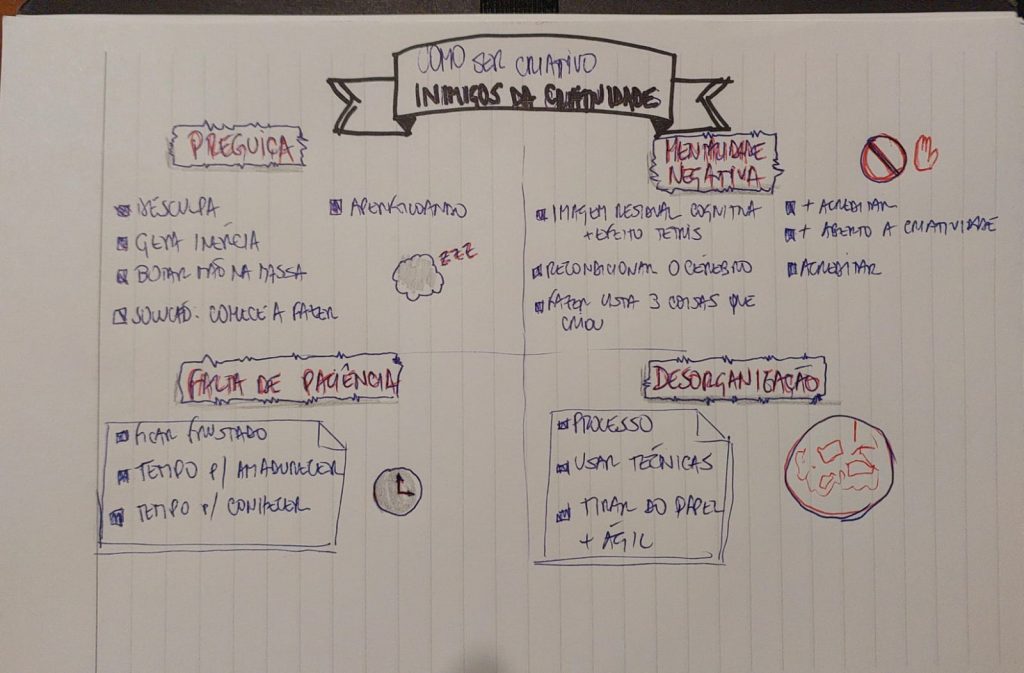 COMO SER CRIATIVO
INIMIGOS DA CRIATIVIDADE
PREGUIÇA
DESCULPA
GERA INÉRCIA
BOTAR MÃO NA MASSA
SOLUCÃO: COMECE A FAZER
ZZZ
MENTALIDADE
NEGATIVA
IMAGEM RESIDUAL COGNITIVA
+ EFEITO TETRIS
RECONDICIONAR O CÉREBRO
FAZER LISTA 3 COISAS QUE
CRIOU
+ ACREDITAR
+ ABERTO A CRIATIVIDADE
ACREDITAR
FALTA DE PACIÊNCIA
FICAR FRUSTADO
TEMPO P/ AMADURECER
TEMPO P/
DESORGANIZAÇÃO
PROCESSO
USAR TÉCNICAS
TIRAR DO PAPEL
+ ÁGIL